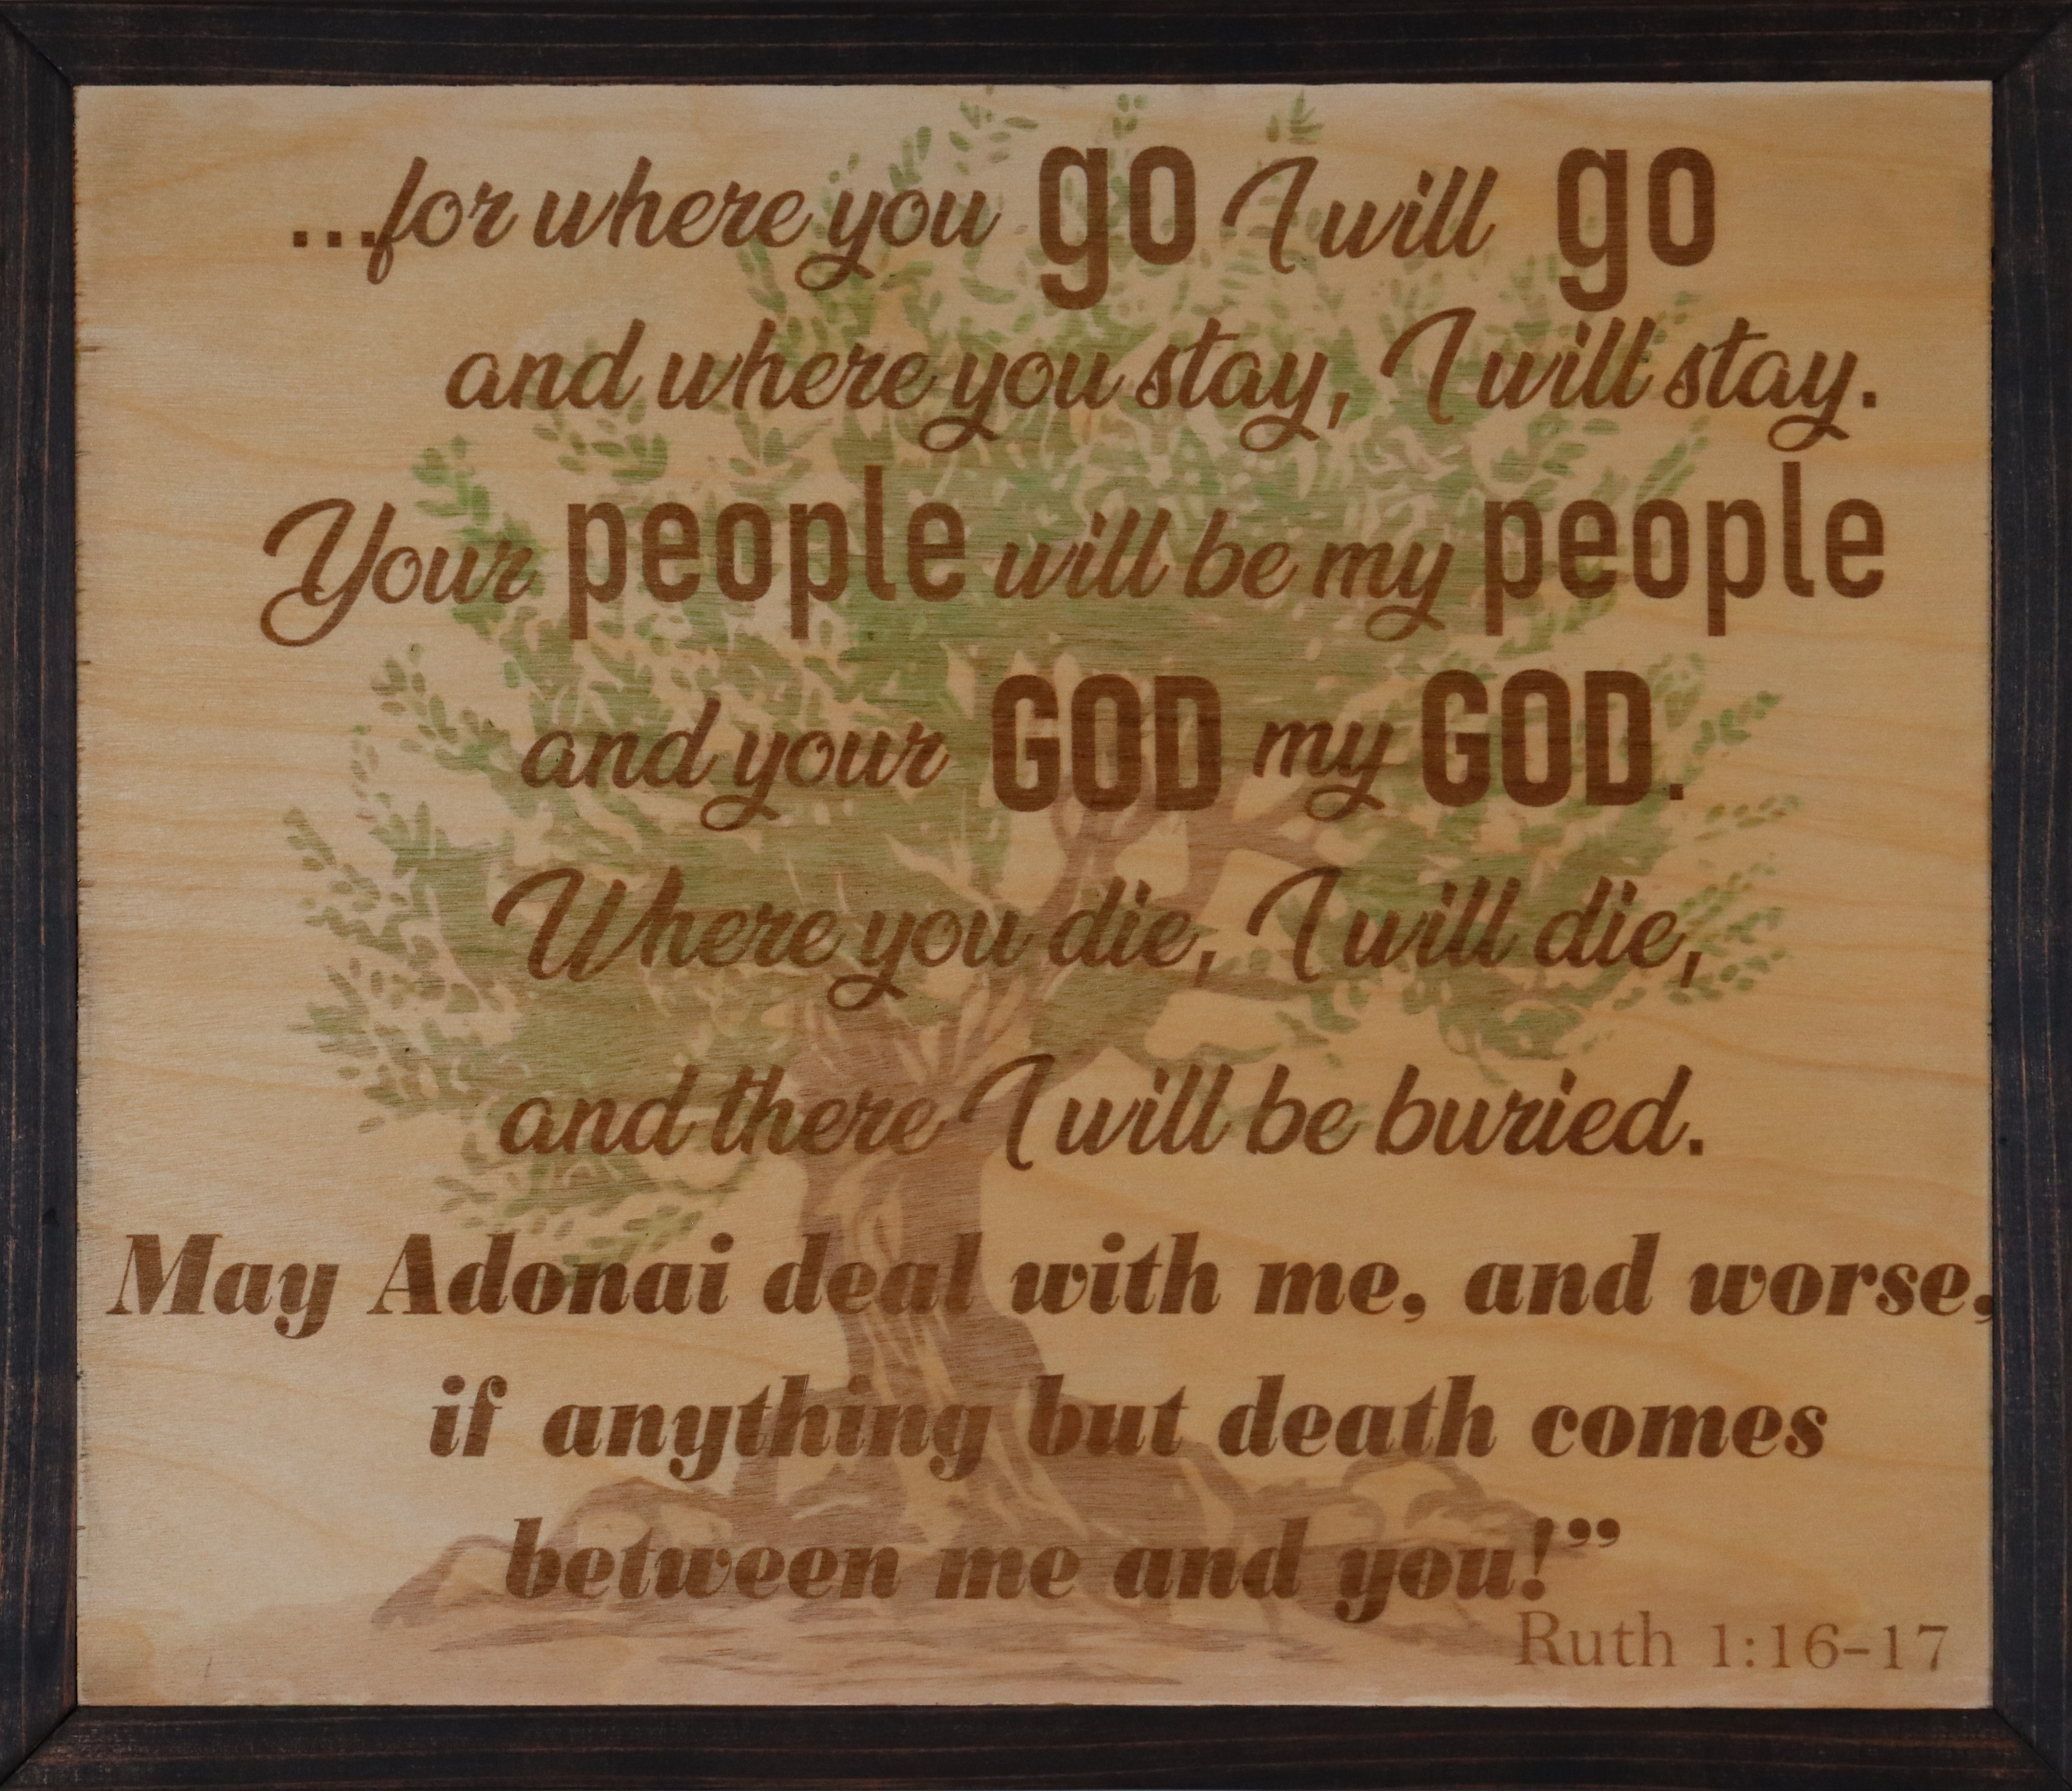 ...for where you go I will go
and where you stay, I will stay.
Your people will be my people
and your GOD my GOD.
Where you die, I will die,
and there I will be buried.
May Adonai deal with me, and worse,
if anything but death comes
between me and you!”
Ruth 1:16-17